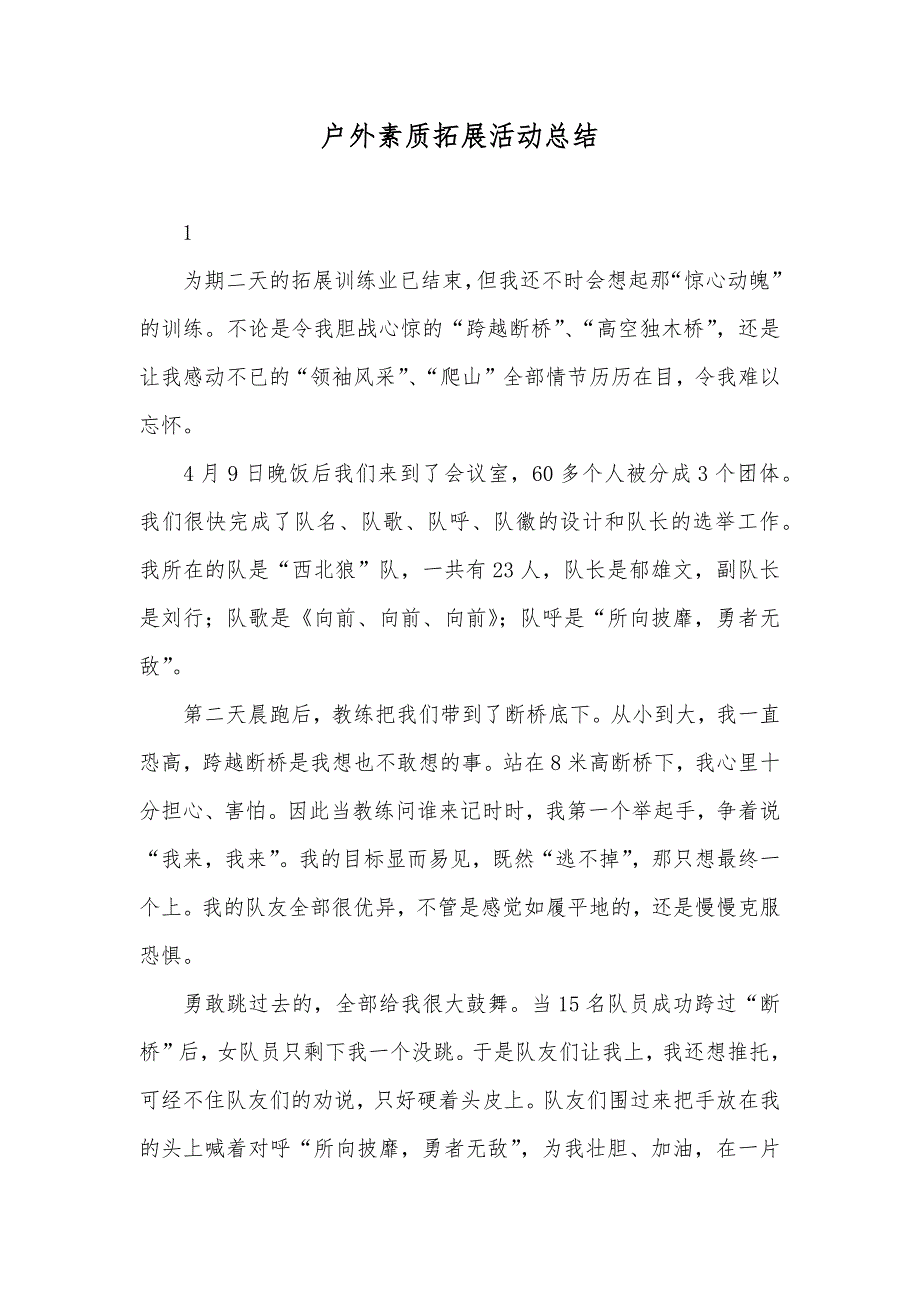 户外素质拓展活动总结
1
为期二天的拓展训练业已结束，但我还不时会想起那“惊心动魄”
的训练。不论是令我胆战心惊的“跨越断桥”、“高空独木桥”，还是
让我感动不已的“领袖风采”、“爬山”全部情节历历在目，令我难以
忘怀。
4 月 9 日晚饭后我们来到了会议室，60 多个人被分成 3 个团体。
我们很快完成了队名、队歌、队呼、队徽的设计和队长的选举工作。
我所在的队是“西北狼”队，一共有 23 人，队长是郁雄文，副队长
是刘行；队歌是《向前、向前、向前》；队呼是“所向披靡，勇者无
敌”。
第二天晨跑后，教练把我们带到了断桥底下。从小到大，我一直
恐高，跨越断桥是我想也不敢想的事。站在 8 米高断桥下，我心里十
分担心、害怕。因此当教练问谁来记时时，我第一个举起手，争着说
“我来，我来”。我的目标显而易见，既然“逃不掉”，那只想最终一
个上。我的队友全部很优异，不管是感觉如履平地的，还是慢慢克服
恐惧。
勇敢跳过去的，全部给我很大鼓舞。当 15 名队员成功跨过“断
桥”后，女队员只剩下我一个没跳。于是队友们让我上，我还想推托，
可经不住队友们的劝说，只好硬着头皮上。队友们围过来把手放在我
的头上喊着对呼“所向披靡，勇者无敌”，为我壮胆、加油，在一片